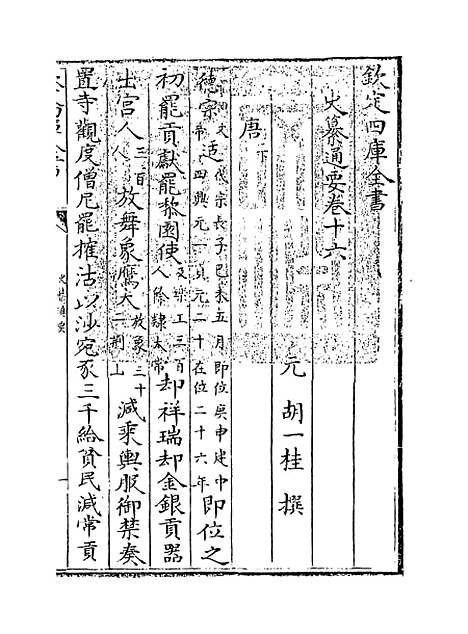 欽定四庫全書
史纂通要卷十六
元 胡一桂 撰
唐下
德宗适代宗長子己未五月即位庚申建中四興元一貞元二十在位二十六年即位之
初罷貢獻罷梨園使及樂工三百人餘隸太常却祥瑞却金銀貢器
出宮人三百人放舞象鷹犬放象三十二荆山減乘輿服御禁奏
置寺觀度僧尼罷榷沽以沙苑豕三千給貧民減常貢
史纂通要
一